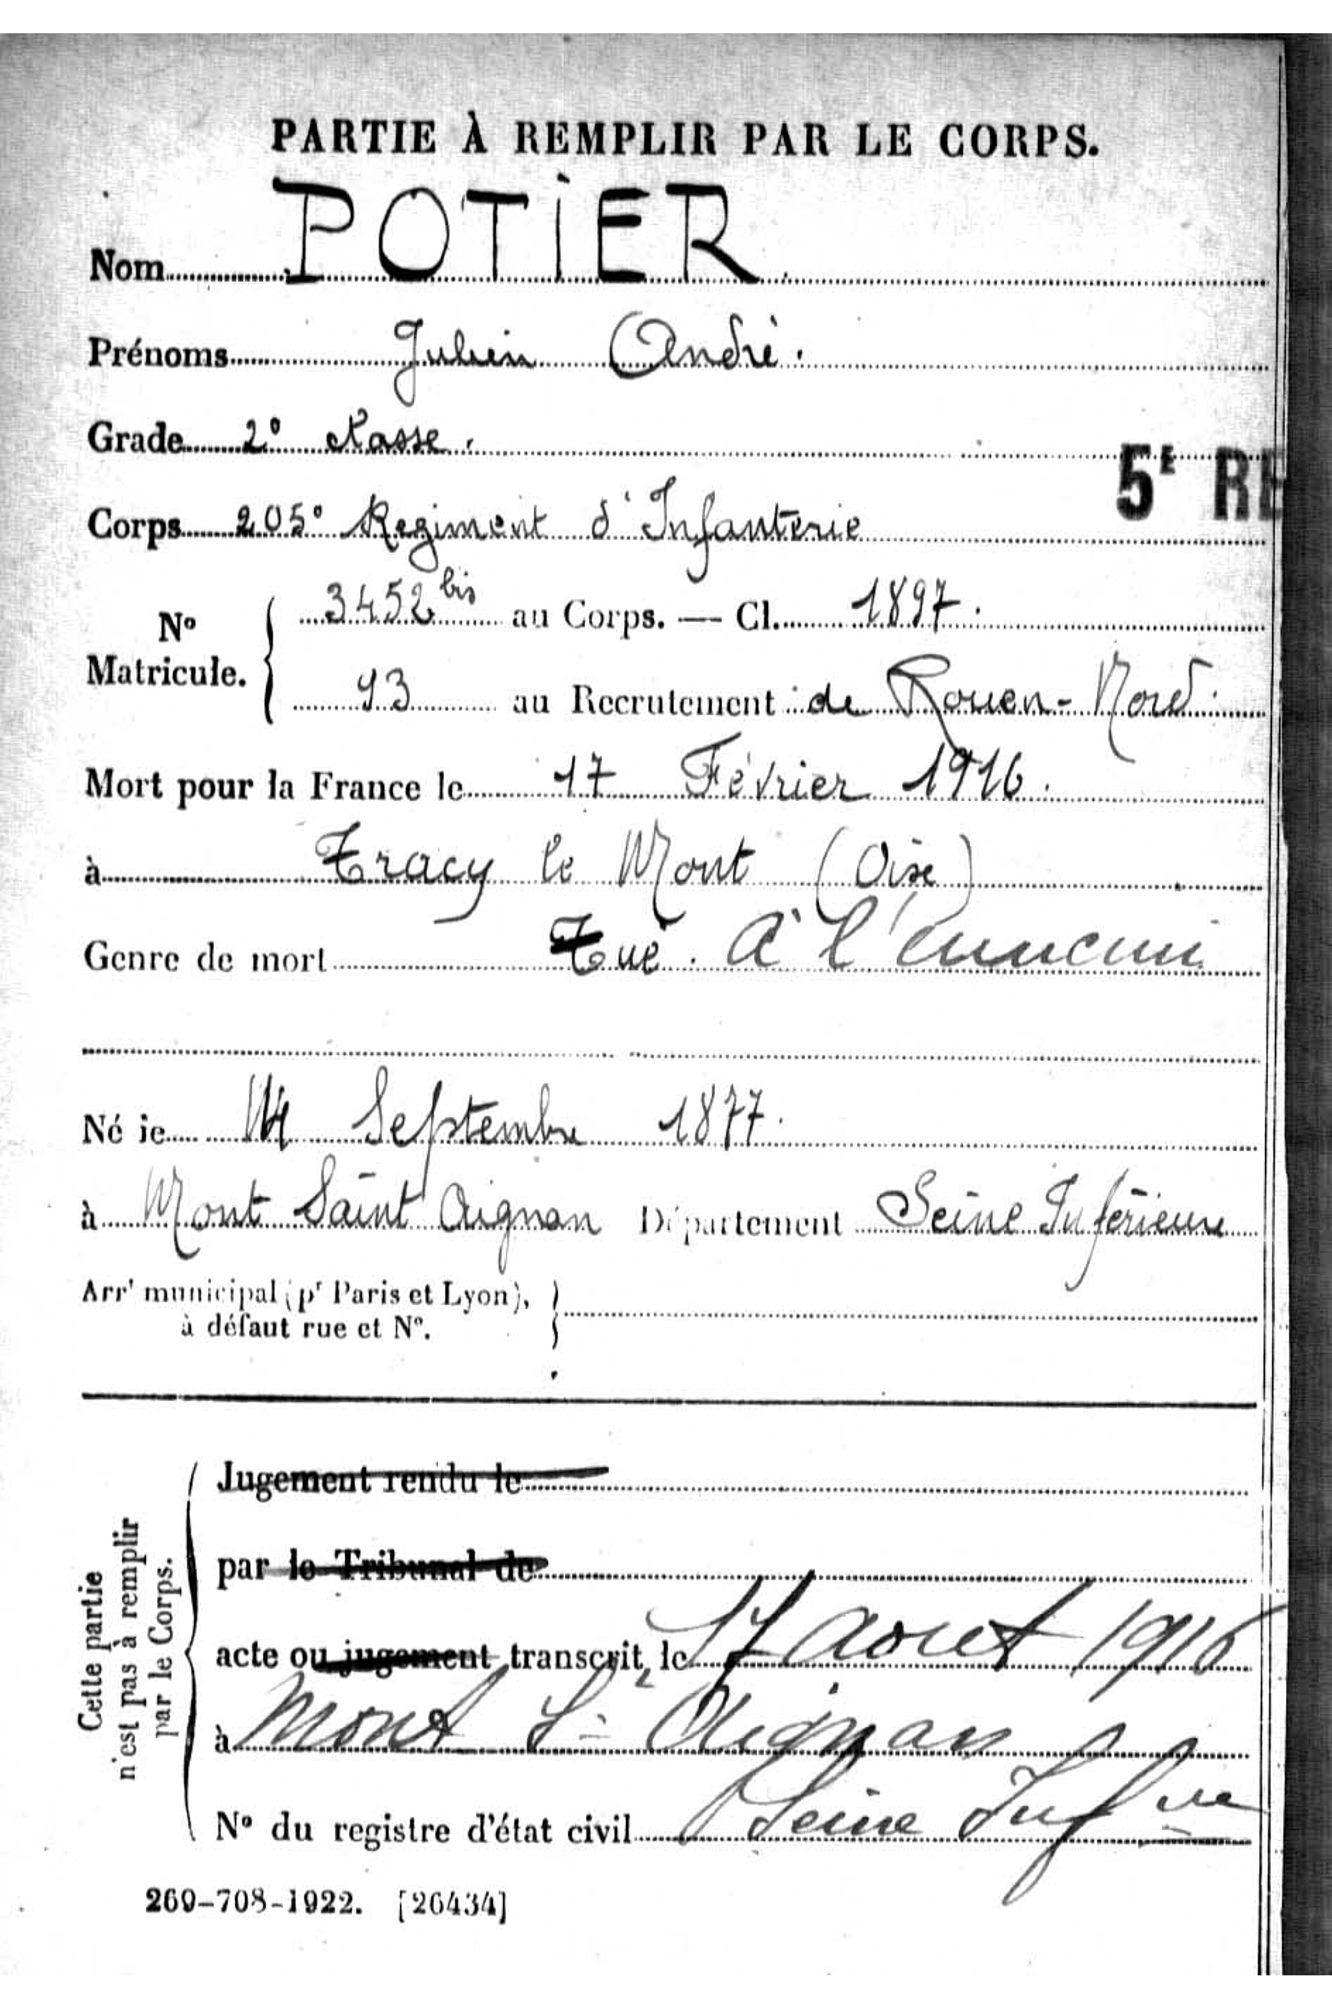 PARTIE À REMPLIR PAR LE CORPS.
Nom POTIER
Prénoms Julien André.
Grade 2e classe.
5E RE
Corps 205e Régiment d'Infanterie
No Matricule. 3452 bis au Corps. — Cl. 1897.
93 au Recrutement de Rouen-Nord.
Mort pour la France le 17 Février 1916.
à Tracy le Mont (Oise)
Genre de mort Tué. à l'ennemi
Né le 14 Septembre 1877.
à Mont Saint Aignan Département Seine Inférieure
Arrt municipal (pr Paris et Lyon),
à défaut rue et No.
Cette partie
n'est pas à remplir
par le Corps.
Jugement rendu le
par le Tribunal de
acte ou jugement transcrit le 17 aout 1916
à Mont St Aignan
No du registre d'état civil Seine Infre
269-708-1922. [26434]